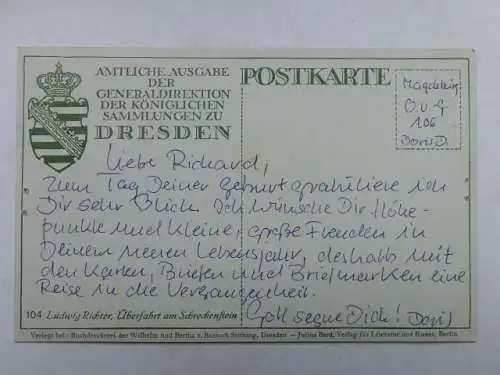 AMTLICHE AUSGABE
DER
GENERALDIREKTION
DER KÖNIGLICHEN
SAMMLUNGEN ZU
DRESDEN
POSTKARTE
Magdeburg
O.v.G.
106
Doris D.
Liebe Richard,
zum Tag Deiner Geburt gratuliere ich
Dir sehr Glück. Ich wünsche Dir Höhe-
punkte und kleine, große Freuden in
Deinem neuen Lebensjahr, deshalb mit
den Karten, Briefen und Briefmarken eine
Reise in die Vergangenheit.
Gott segne Dich! Doris
104 Ludwig Richter, Überfahrt am Schreckenstein
Verlegt bei: Buchdruckerei der Wilhelm und Bertha v. Baensch Stiftung, Dresden — Julius Bard, Verlag für Literatur und Kunst, Berlin